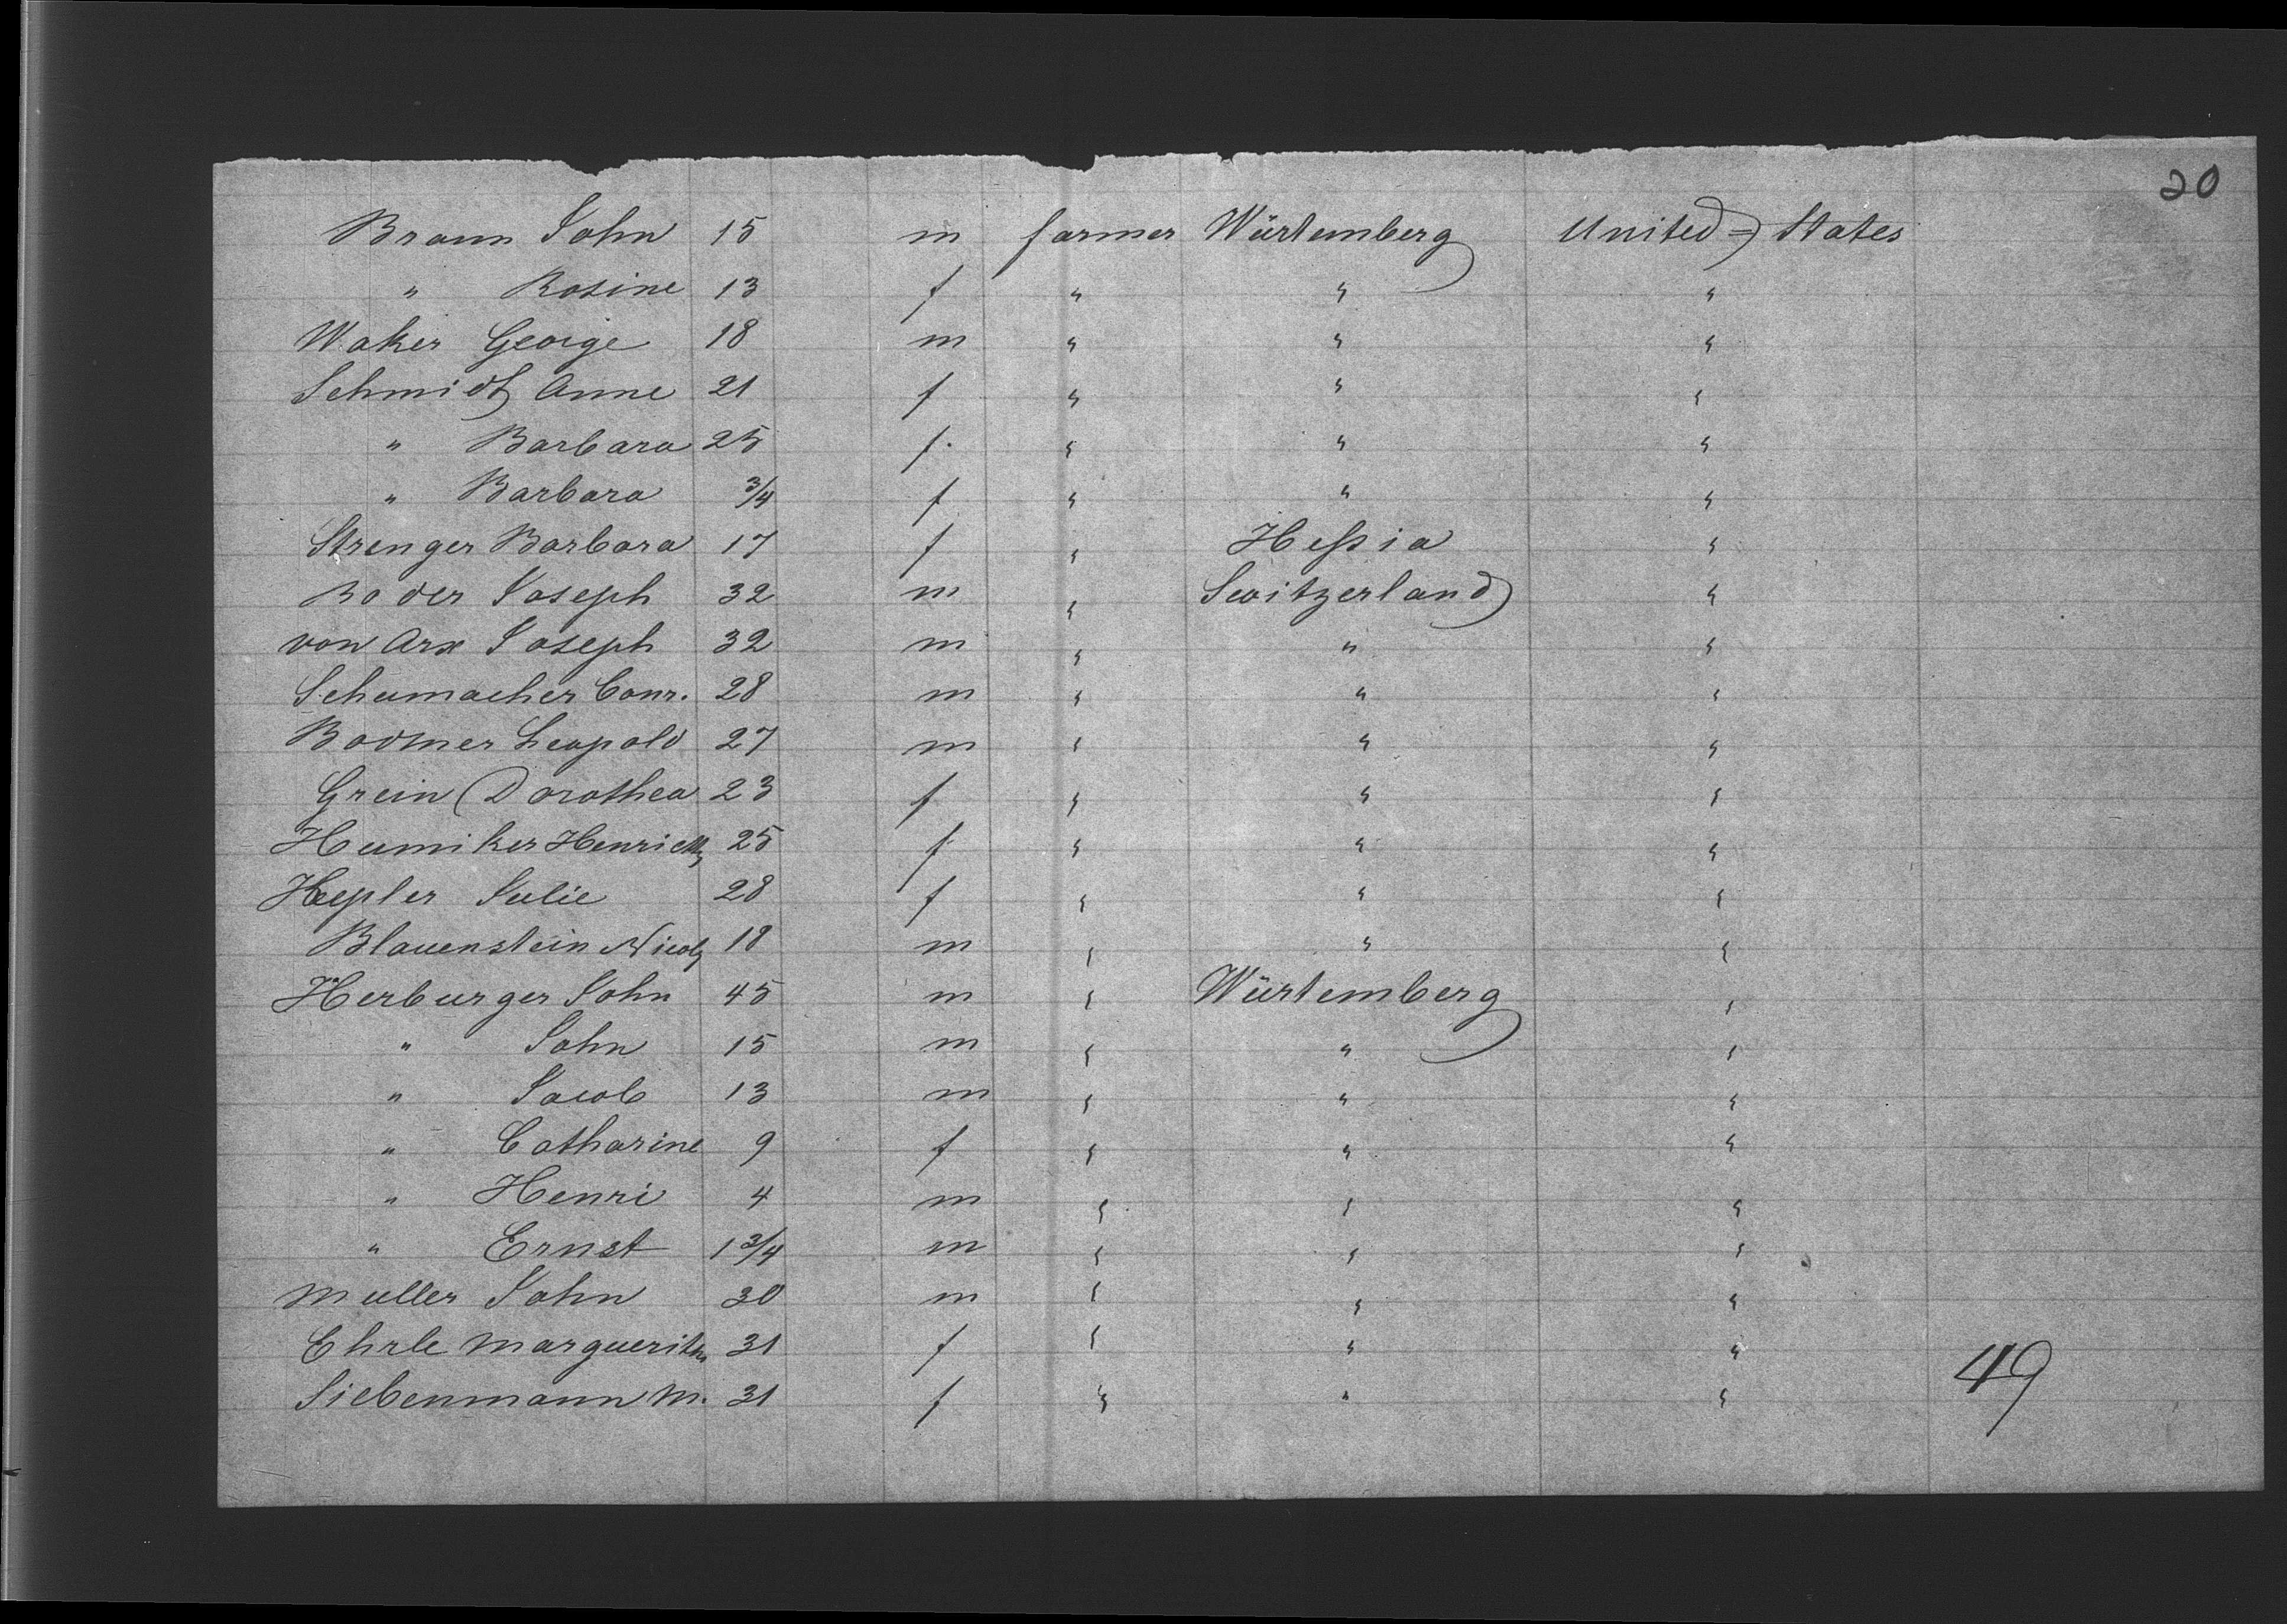 20
Braun John 15 m farmer Würtemberg United States
" Rosine 13 f " " "
Waker George 18 m " " "
Schmidt Anne 21 f " " "
" Barbara 25 f. " " "
" Barbara 3/4 f " " "
Strenger Barbara 17 f " Hessia "
Boder Joseph 32 m " Switzerland "
von Arx Joseph 32 m " " "
Schumacher Conr. 28 m " " "
Bodmer Leopold 27 m " " "
Grein Dorothea 23 f " " "
Humiker 25 f " " "
Hepler Julie 28 f " " "
Blauenstein 18 m " " "
Herburger John 45 m " Würtemberg "
" John 15 m " " "
" Jacob 13 m " " "
" Catharine 9 f " " "
" Henri 4 m " " "
" Ernst 1 3/4 m " " "
Muller John 30 m " " "
Ehrle 31 f " " "
Siebenmann M. 31 f " " "
49